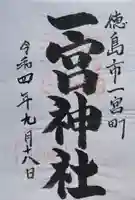 徳島市一宮町
一宮神社
令和四年九月廿八日